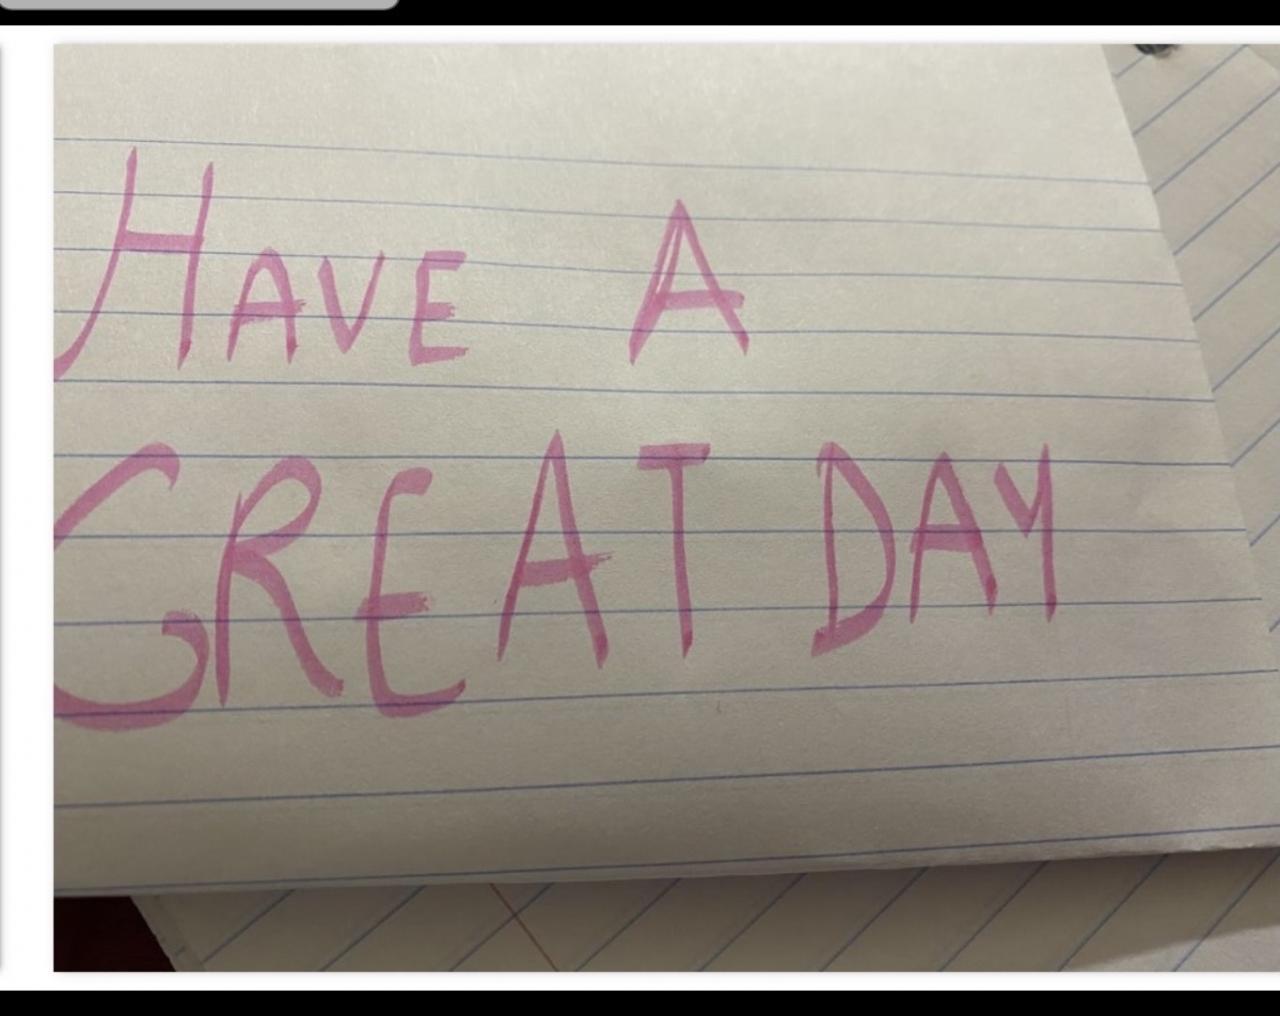 HAVE A
GREAT DAY